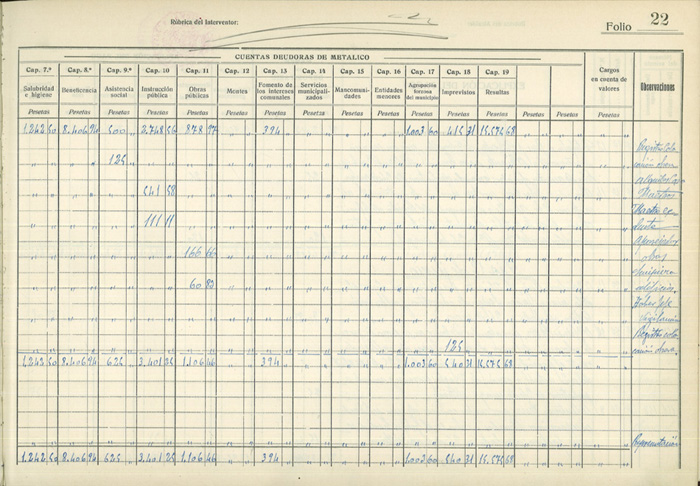 Rúbrica del Interventor:
Folio 22
CUENTAS DEUDORAS DE METALICO
Cap. 7.º Cap. 8.º Cap. 9.º Cap. 10 Cap. 11 Cap. 12 Cap. 13 Cap. 14 Cap. 15 Cap. 16 Cap. 17 Cap. 18 Cap. 19
Salubridad e higiene Beneficencia Asistencia social Instrucción pública Obras públicas Montes Fomento de los intereses comunales Servicios municipalizados Mancomunidades Entidades menores Agrupación forzosa del municipio Imprevistos Resultas Cargos en cuenta de valores Observaciones
Pesetas Pesetas Pesetas Pesetas Pesetas Pesetas Pesetas Pesetas Pesetas Pesetas Pesetas Pesetas Pesetas Pesetas Pesetas Pesetas
1.242 50 8.406 94 500 2.748 56 878 97 394 1.003 60 415 31 15.575 68
125
541 58
111 11
166 66
60 83
125
1.242 50 8.406 94 625 3.401 25 1.106 46 394 1.003 60 540 31 15.575 68
1.242 50 8.406 94 625 3.401 25 1.106 46 394 1.003 60 540 31 15.575 68